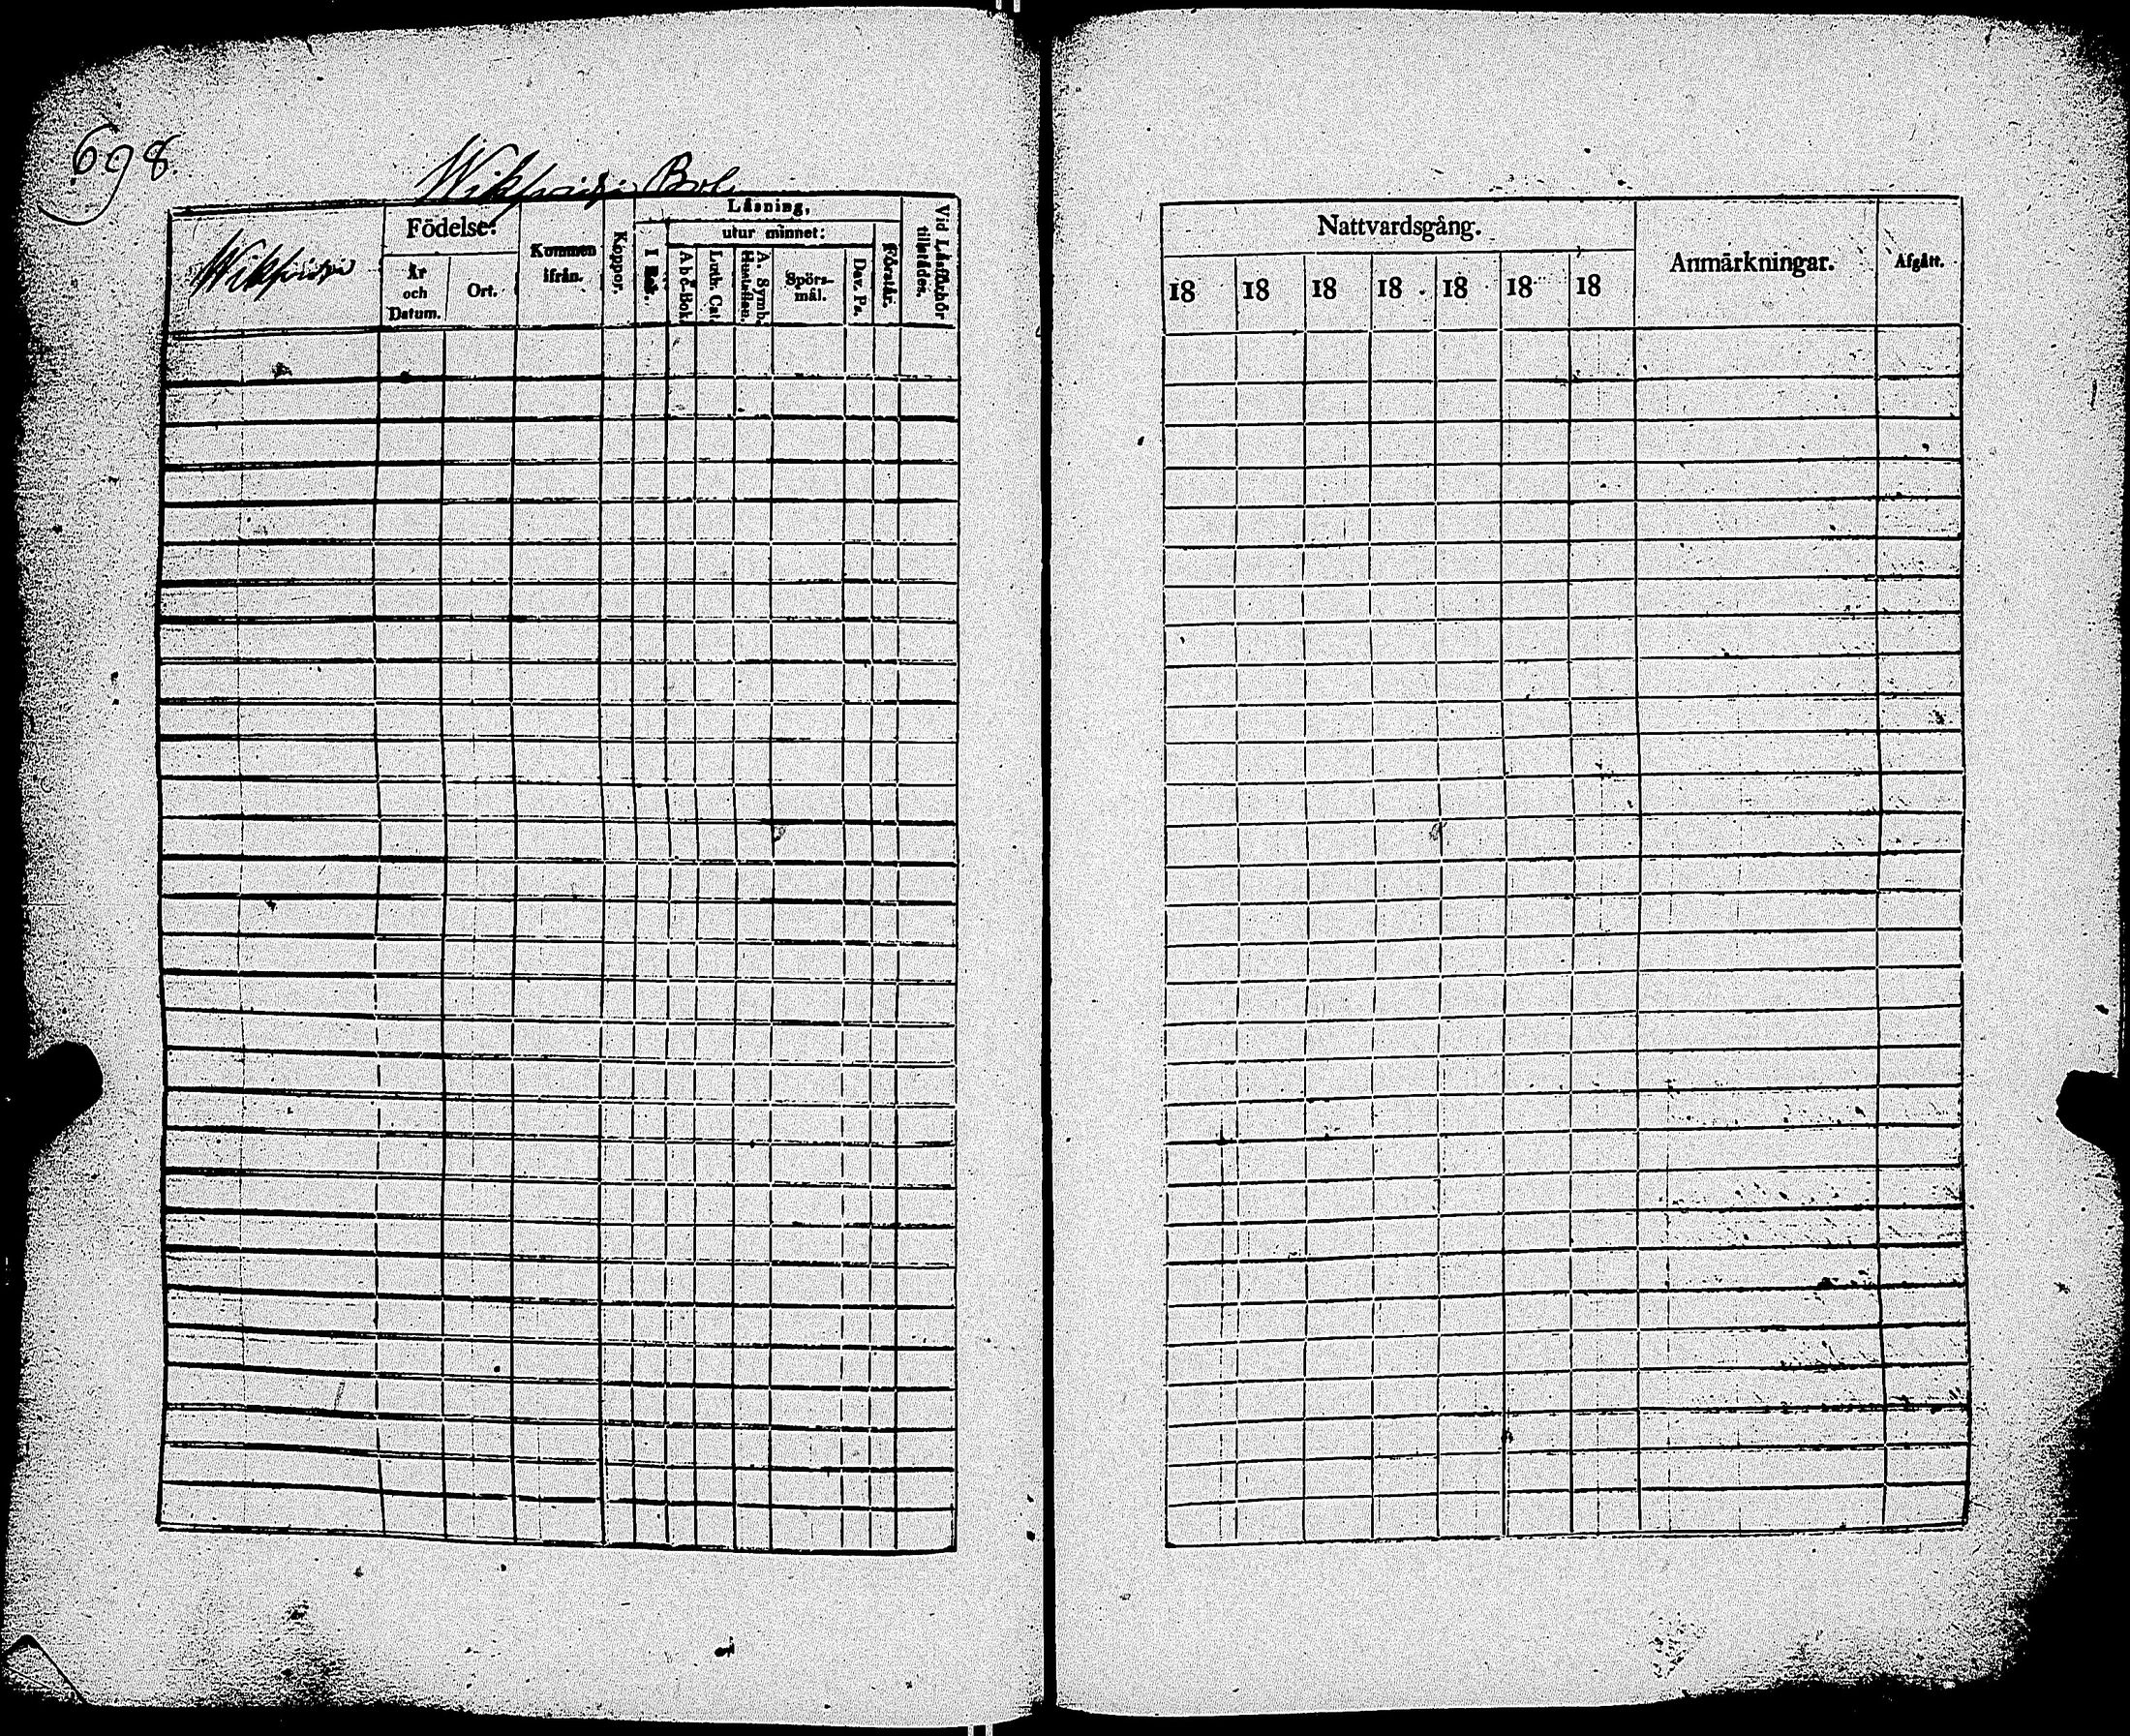 698.
Bol
Födelse:
År
och
Datum.
Ort.
Kommen
ifrån.
Koppor.
Läsning,
I Bok.
utur minnet:
Abc-Bok
Luth. Cat.
A. Symb.
Hustaflan.
Spörs-
mål.
Dav. Ps.
Förstår.
Vid Läsförhör
tillstädes.
Nattvardsgång.
18 18 18 18 18 18 18
Anmärkningar.
Afgått.